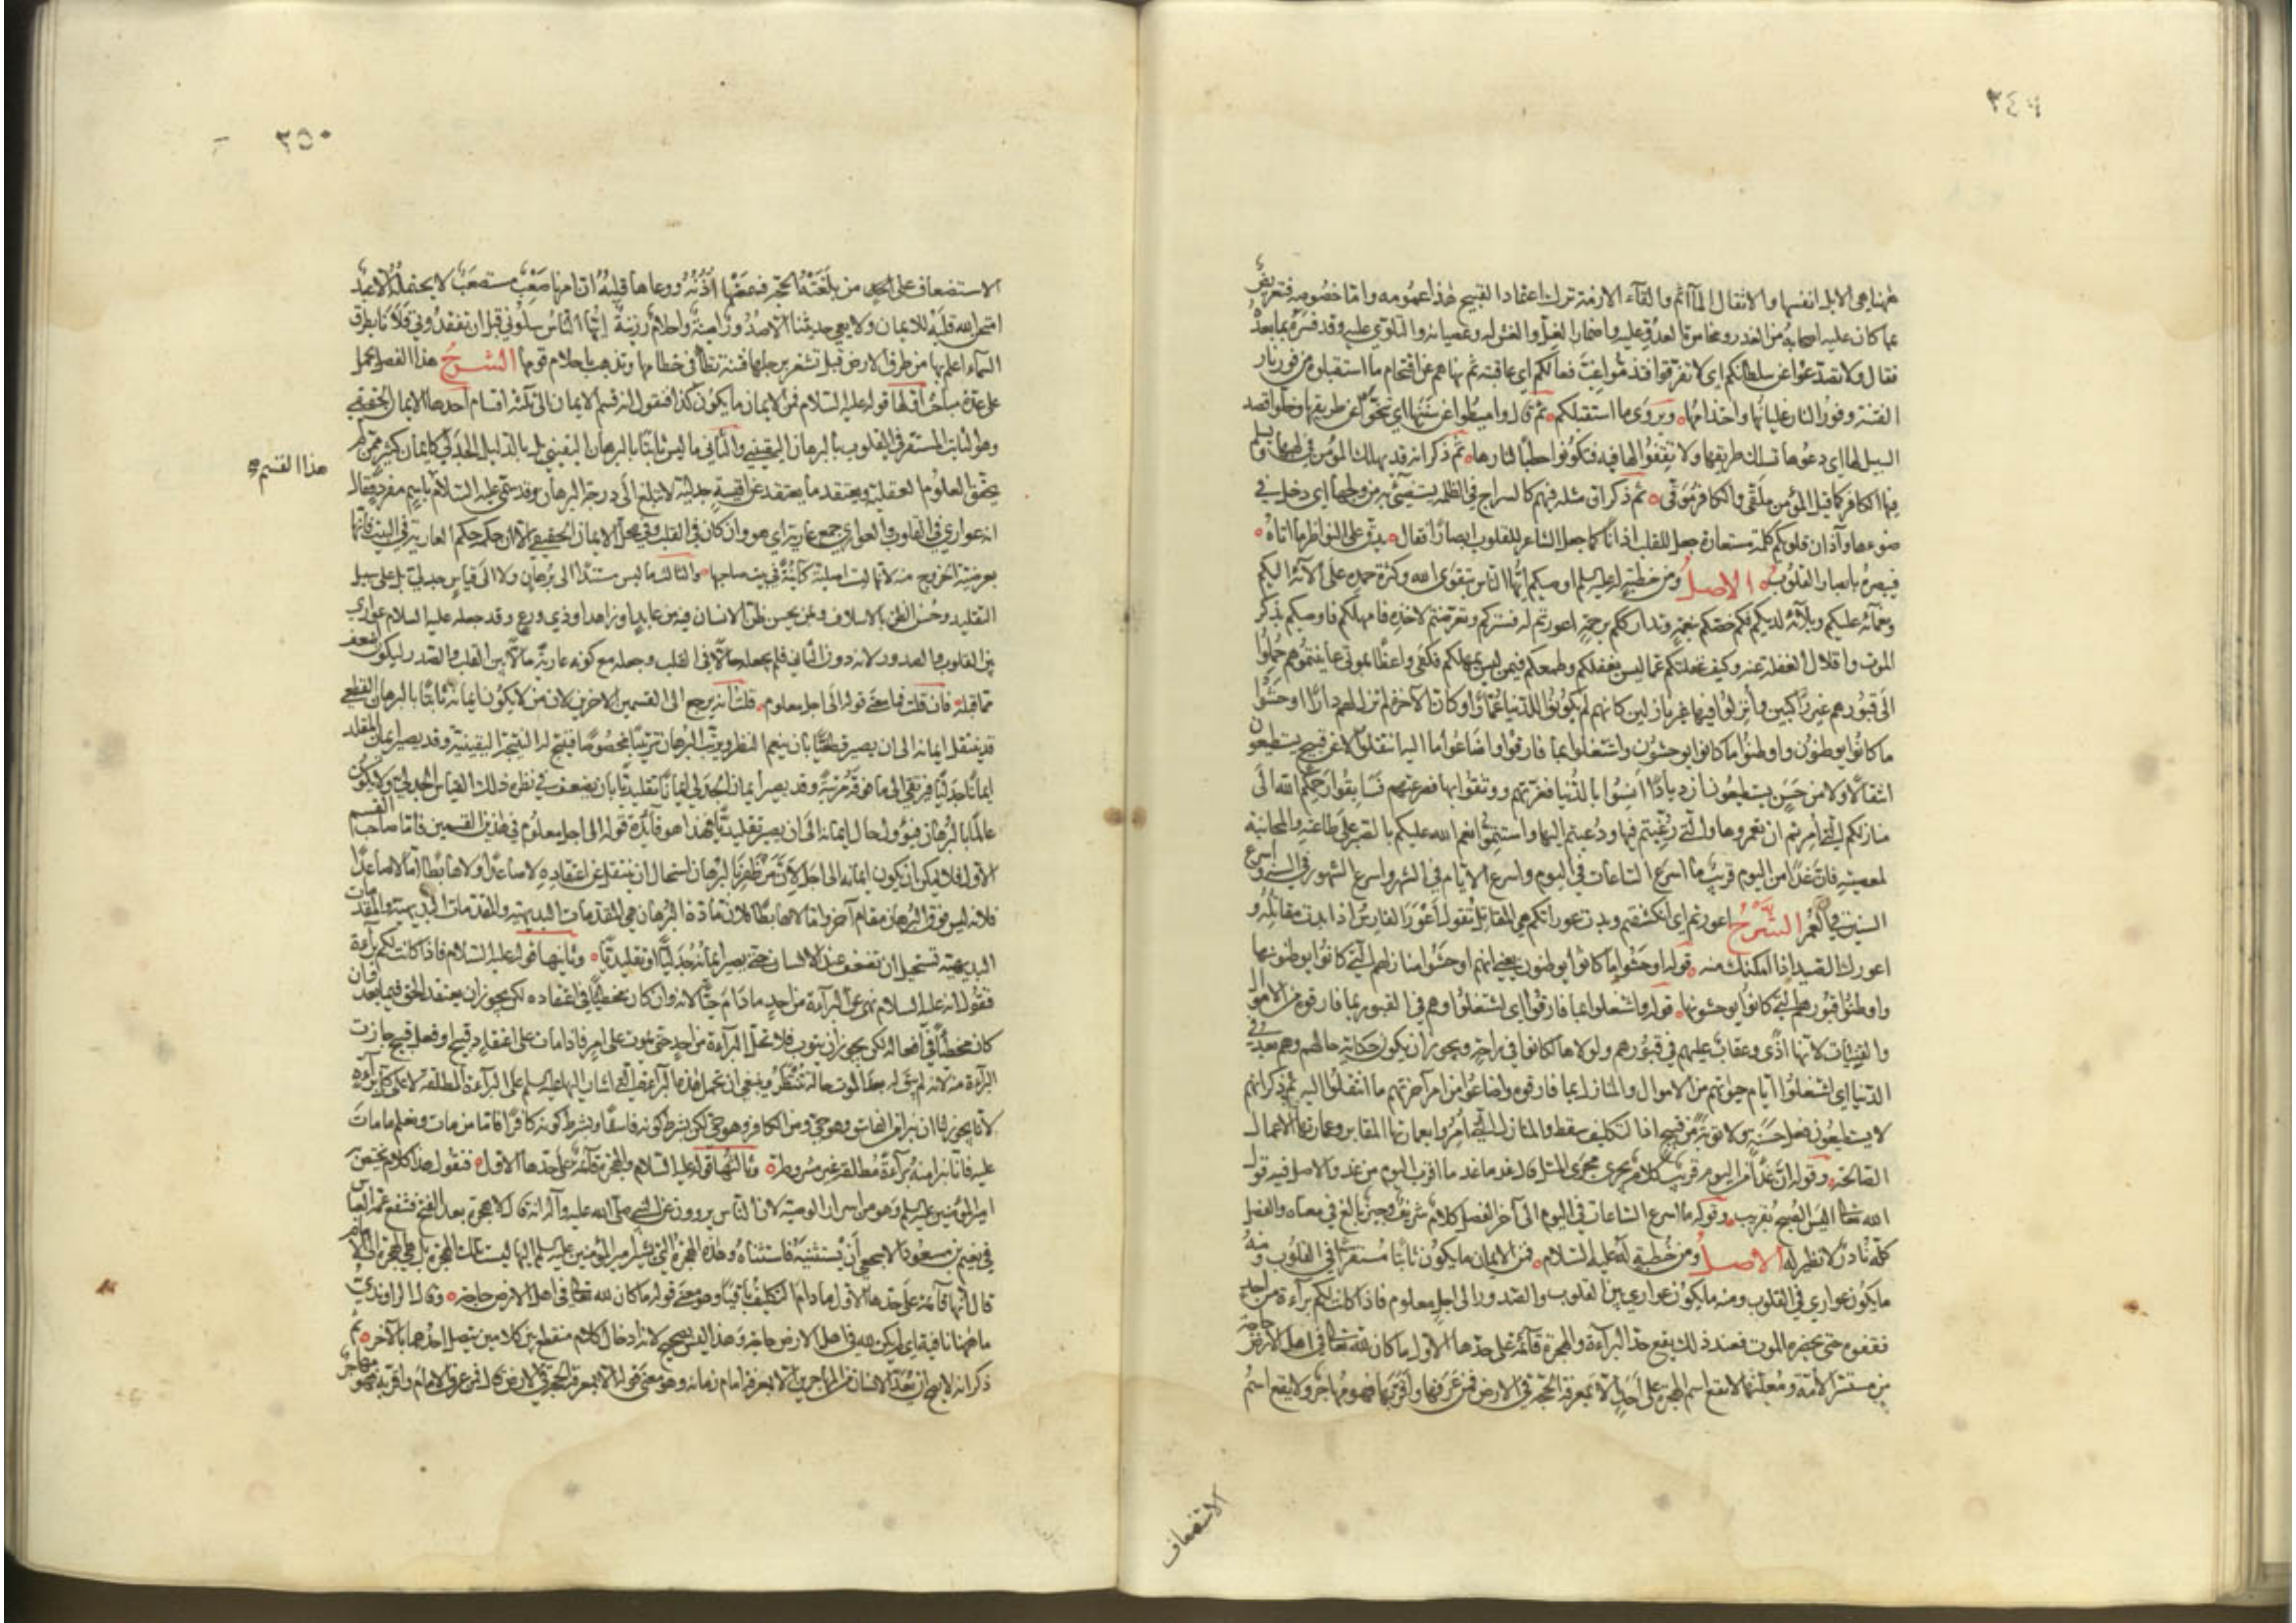 ٢٤٩
ههنا هي الابل انفسها والاثقال المآثم والقآء الازمة ترك اعتقاد القبيح فهذا عمومه واما خصوصه فتعريض
عما كان عليه اصحابه من الغدر ومخامرة العدو عليه واضمار الغل والغش له وعصيانه والتلوي عليه وقد فسره بما بعده
فقال ولا تصدعوا عن سلطانكم اي لا تفرقوا فتذموا غب فعالكم اي عاقبته ثم نهاهم عن اقتحام ما استقبلوه من فور نار
الفتنة وفور النار غليانها واحتدامها ويروى ما استقبلكم ثم قال واميطوا عن سننها اي تنحوا عن طريقها وخلوا قصد
السبيل لها اي دعوها تسلك طريقها ولا تقفوا لها فيه فتكونوا حطبا لنارها ثم ذكر انه قد يهلك المؤمن في لهبها ويسلم
فيها الكافر كما قيل المؤمن ملقى والكافر موقى ثم ذكر ان مثله فيهم كالسراج في الظلمة يستضيئ به من ولجها اي دخل في
ضوءها وآذان قلوبكم كلمة مستعارة جعل للقلب اذانا كما جعل الشاعر للقلوب ابصارا فقال يدق على النواظر ما اتاه
فيبصره بابصار القلوب الاصل ومن خطبة له عليه السلم اوصيكم ايها الناس بتقوى الله وكثرة حمده على الآئه اليكم
ونعمآئه عليكم وبلآئه لديكم فكم خصكم بنعمة وتدارككم برحمة اعورتم له فستركم وتعرضتم لاخذه فامهلكم واوصيكم بذكر
الموت واقلال الغفلة عنه وكيف غفلتكم عما ليس يغفلكم وطمعكم فيمن ليس يمهلكم فكفى واعظا بموتى عاينتموهم حملوا
الى قبورهم غير راكبين وانزلوا فيها غير نازلين كانهم لم يكونوا للدنيا عمارا وكان الآخرة لم تزل لهم دارا اوحشوا
ما كانوا يوطنون واوطنوا ما كانوا يوحشون واشتغلوا بما فارقوا واضاعوا ما اليه انتقلوا لا عن قبيح يستطيعون
انتقالا ولا من حسن يستطيعون ازديادا انسوا بالدنيا فغرتهم ووثقوا بها فصرعتهم فسابقوا رحمكم الله الى
منازلكم التي امرتم ان تعمروها والتي رغبتم فيها ودعيتم اليها واستتموا نعم الله عليكم بالصبر على طاعته والمجانبة
لمعصيته فان غدا من اليوم قريب ما اسرع الساعات في اليوم واسرع الايام في الشهر واسرع الشهور في السنة واسرع
السنين في العمر الشرح اعورتم اي انكشفتم وبدت عوراتكم وهي المقاتل تقول اعور الفارس اذا بدت مقاتله و
اعورك الصيد اذا امكنك منه قوله اوحشوا ما كانوا يوطنون يعني انهم اوحشوا منازلهم التي كانوا يوطنونها
واوطنوا قبورهم التي كانوا يوحشونها قوله واشتغلوا بما فارقوا اي اشتغلوا وهم في القبور بما فارقوه من الاموال
والقينات لانها اذى وعقاب عليهم في قبورهم ولولاها لكانوا في راحة ويجوز ان يكون حكاية حالهم وهم بعد في
الدنيا اي اشتغلوا ايام حيوتهم من الاموال والمنازل بما فارقوه واضاعوا من امر آخرتهم ما انتقلوا اليه ثم ذكر انهم
لا يستطيعون فعل حسنة ولا توبة من قبيح اذ التكليف سقط والمنازل التي امروا بعمارتها المقابر وعمارتها الاعمال
الصالحة وقوله ان غدا من اليوم قريب كلام يجري مجرى المثل قال غد ما غد ما اقرب اليوم من غد والاصل فيه قول
الله تعالى اليس الصبح بقريب وقوله ما اسرع الساعات في اليوم الى آخر الفصل كلام شريف وجيز بالغ في معناه والفصل
كله نادر لا نظير له الاصل ومن خطبة له عليه السلام فمن الايمان ما يكون ثابتا مستقرا في القلوب ومنه
ما يكون عواري في القلوب ومنه ما يكون عواري بين القلوب والصدور الى اجل معلوم فاذا كانت لكم برآءة من احد
فقفوه حتى يحضره الموت فعند ذلك يقع حد البرآءة والهجرة قآئمة على حدها الاول ما كان لله تعالى في اهل الارض حاجة
من مستسر الامة ومعلنها لا يقع اسم الهجرة على احد الا بمعرفة الحجة في الارض فمن عرفها واقر بها فهو مهاجر ولا يقع اسم
الاستضعاف
٢٥٠
الاستضعاف على احد من بلغته الحجة فسمعتها اذنه ووعاها قلبه ان امرنا صعب مستصعب لا يحتمله الا عبد
امتحن الله قلبه للايمان ولا يعي حديثنا الا صدور امينة واحلام رزينة ايها الناس سلوني قبل ان تفقدوني فلانا بطرق
السمآء اعلم بها من طرق الارض قبل ان تشغر برجلها فتنة تطأ في خطامها وتذهب باحلام قومها الشرح هذا الفصل يحمل
على عدة مباحث اولها قوله عليه السلام فمن الايمان ما يكون كذا فنقول انه قسم الايمان الى ثلثة اقسام احدها الايمان الحقيقي
وهو الثابت المستقر في القلوب بالبرهان اليقيني والثاني ما ليس ثابتا بالبرهان اليقيني بل بالدليل الجدلي كايمان كثير ممن لم
يحقق العلوم العقلية ويعتقد ما يعتقد عن اقيسة جدلية لا تبلغ الى درجة البرهان وقد سمى عليه السلام باسم مفرد فقال
هذا القسم
انه عواري في القلوب والعواري جمع عارية اي هو وان كان في القلب وفي محل الايمان الحقيقي الا ان حكمه حكم العارية في البيت فانها
بعرضية الخروج منه لانها ليست اصلية كآئنة في بيت صاحبها والثالث ما ليس مستندا الى برهان ولا الى قياس جدلي بل على سبيل
التقليد وحسن الظن بالاسلاف وبمن يحسن ظن الانسان فيه من عابد او زاهد او ذي ورع وقد جعله عليه السلام عواري
بين القلوب والصدور لانه دون الثاني فلم يجعله حالا في القلب وجعله مع كونه عارية حالا بين القلب والصدر ليكون اضعف
مما قبله فان قلت فما معنى قوله الى اجل معلوم قلت انه يرجع الى القسمين الاخرين لان من لا يكون ايمانه ثابتا بالبرهان القطعي
قد ينتقل ايمانه الى ان يصير قطعيا بان ينعم النظر ويرتب البرهان ترتيبا مخصوصا فينتج له النتيجة اليقينية وقد يصير ايمان المقلد
ايمانا جدليا فيرتقي الى ما فوقه مرتبة وقد يصير ايمان الجدلي ايمانا تقليديا بان يضعف في نظره ذلك القياس الجدلي ولا يكون
عالما بالبرهان فيؤول حال ايمانه الى ان يصير تقليديا فهذا هو فآئدة قوله الى اجل معلوم في هذين القسمين فاما صاحب القسم
الاول فلا يمكن ان يكون ايمانه الى اجل لان من ظفر بالبرهان استحال ان ينتقل عن اعتقاده لا صاعدا ولا هابطا اما لا صاعدا
فلانه ليس فوق البرهان مقام آخر واما لا هابطا فلان مادة البرهان هي المقدمات البديهية والمقدمات
البديهية تستحيل ان تضعف عند الانسان حتى يصير ايمانه جدليا او تقليديا وثانيها قوله عليه السلام فاذا كانت لكم برآءة
فنقول انه عليه السلام نهى عن البرآءة من احد ما دام حيا لانه وان كان مخطيا في اعتقاده لكن يجوز ان يعتقد الحق فيما بعد وان
كان مخطئا في افعاله لكن يجوز ان يتوب فلا تحل البرآءة من احد حتى يموت على امر فاذا مات على اعتقاد قبيح او فعل قبيح جازت
البرآءة منه لانه لم يبق له بعد الموت حالة تنتظر وينبغي ان تحمل هذه البرآءة التي اشار اليها عليه السلم على البرآءة المطلقة لا على كل برآءة
لانا يجوز لنا ان نبرأ من الفاسق وهو حي ومن الكافر وهو حي لكن بشرط كونه فاسقا وبشرط كونه كافرا فاما من مات ونعلم ما مات
عليه فانا نبرأ منه برآءة مطلقة غير مشروطة وثالثها قوله عليه السلام والهجرة قآئمة على حدها الاول فنقول هذا كلام يختص
امير المؤمنين عليه السلم وهو من اسرار الوصية لان الناس يروون عن النبي صلى الله عليه وآله انه قال لا هجرة بعد الفتح فشفع عمه العباس
في نعيم بن مسعود الاشجعي ان يستثنيه فاستثناه وهذه الهجرة التي يشير امير المؤمنين عليه السلم اليها ليست تلك الهجرة بل هي الهجرة الى الامام
قال انها قآئمة على حدها الاول ما دام التكليف باقيا وهو معنى قوله ما كان لله تعالى في اهل الارض حاجة وقال الراوندي
ما ههنا نافية اي لم يكن لله في اهل الارض حاجة وهذا ليس بصحيح لانه ادخال كلام منقطع بين كلامين يتصل احدهما بالآخر ثم
ذكر انه لا يصح ان يعد الانسان من المهاجرين الا بمعرفة امام زمانه وهو معنى قوله الا بمعرفة الحجة في الارض قال فمن عرف الامام واقر به فهو مهاجر